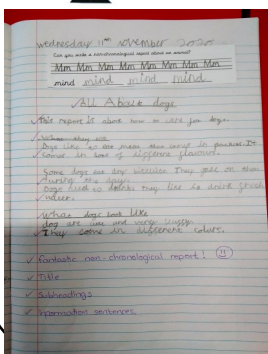 wednesday 11th november 2020
Can you write a non-chronological report about an animal?
Mm Mm Mm Mm Mm Mm Mm Mm
mind mind mind mind
All About dogs
This report is about how to care for dogs.
What they eat
Dogs like to eat meat that comes in pouches. It
comes in lots of different flavours.
Some dogs eat dry biscuits. They eat them
during the days.
Dogs need to drink they like to drink fresh
water.
What dogs look like
dog are cute and very fluffy.
They come in different colors.
Fantastic non-chronological report!
Title
Subheadings
Information sentences